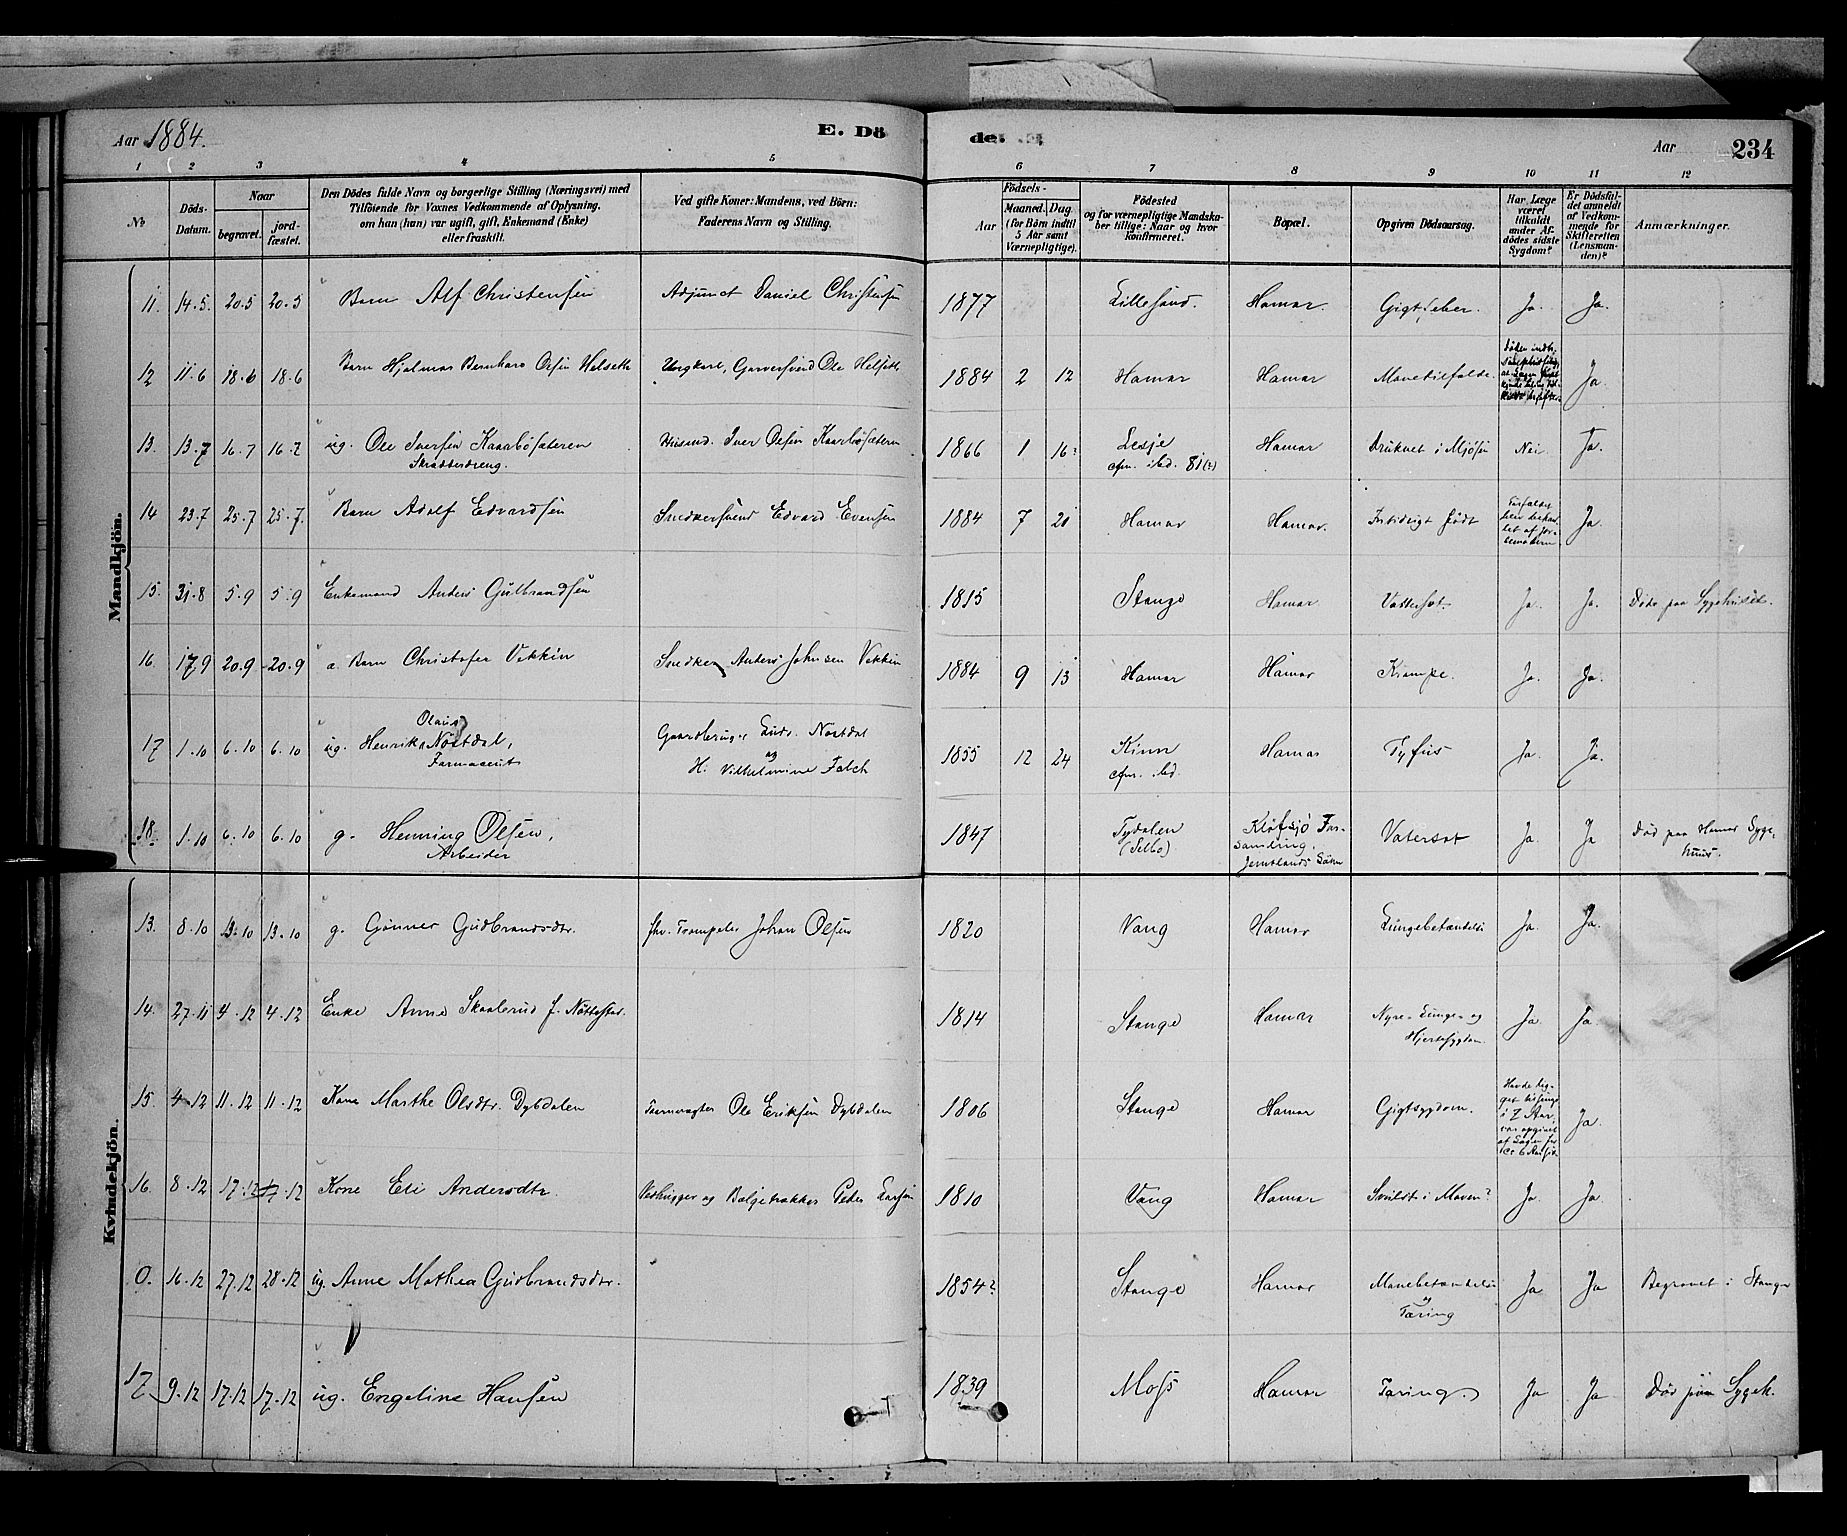 Aar 1884. E. Dö de. Aar 234
1 2 3 4 5 6 7 8 9 10 11 12
№ Döds-Datum. Naar begravet. jordfæstet.
Den Dödes fulde Navn og borgerlige Stilling (Næringsvei) med
Tilföiende for Voxnes Vedkommende af Oplysning,
om han (hun) var ugift, gift, Enkemand (Enke)
eller fraskilt.
Ved gifte Koner: Mandens, ved Börn:
Faderens Navn og Stilling.
Födsels-
Aar Maaned. Dag.
(for Börn indtil
5 Aar samt
Værnepligtige).
Födested
og for værnepligtige Mandska-
ber tillige: Naar og hvor
konfirmeret.
Bopæl.
Opgiven Dödsaarsag.
Har Læge
været
tilkaldt
under Af-
dödes sidste
Sygdom?
Er Dödsfal-
det anmeldt
af Vedkom-
mende for
Skifteretten
(Lensman-
den)?
Anmærkninger.
Mandkjön.
11. 14.5. 20.5 20.5 Barn Alf Christensen Adjunct Daniel Christensen 1877 Lillesand. Hamar. Gigtfeber. Ja. Ja.
12 11.6 18.6 18.6 Barn Hjalmar Bernhard Olsen Helseth Ungkarl, Garversvend Ole Helseth 1884 2 12 Hamar Hamar Mavetilfælde. Ja.
13. 13.7 16.7 16.7 ug. Ole Iversen Kaarbösæteren Husmd. Iver Olsen Kaarbösæteren 1866 1 16? Lesje Hamar Druknet i Mjösen Nei Ja.
Skrædderdreng. cfm. ibd. 81(?)
14 23.7 25.7 25.7. Barn Adolf Edvardsen Snedkersvend Edvard Evensen 1884 7 20 Hamar Hamar. Fortidligt født Ja.
15. 31.8 5.9 5.9 Enkemand Anders Gulbrandsen 1815 Stange Hamar Vattersot. Ja. Ja. Døde paa Sygehuset.
16. 17.9 20.9 20.9 a. Barn Christofer Vekkin Snedker Anders Johnsen Vekkin 1884 9 13 Hamar Hamar Krampe. Ja. Ja.
17 1.10 6.10 6.10 ug. Henrik Olaus Nöstdal, Gaardbruger Ludv. Nöstdal 1855 12 24 Kinn Hamar Tyfus Ja. Ja.
Farmaceut og H. Vilhelmine Falch cfm. ibd.
18. 1.10 6.10 6.10 g. Henning Olsen, 1847 Tydalen Klöfsjö For- Vatersot Ja. Ja Död paa Hamar Syge-
Arbeider (Selbo) samling, huus.
Jemtlands Län
Kvindekjön.
13. 8.10 13.10 13.10 g. Gunner Gudbrandsdtr. fhv. Trompeter Johan Olsen 1820 Vang Hamar Lungebetændelse Ja. Ja.
14. 27.11 4.12 4.12 Enke Anne Skaalerud f. Nöttestad. 1814 Stange Hamar Nyre- Lunge- og Ja. Ja.
Hjertesygdom
15. 4.12 11.12 11.12 Kone Marthe Olsdtr. Dybdalen Taarnvagter Ole Eriksen Dybdalen 1806 Stange Hamar Gigtsygdom. Ja.
16. 8.12 17.12 17.12 Kone Eli Andersdtr. Vedhugger og Bælgetrækker Peder Larsen 1810 Vang Hamar Svulst i Maven? Ja Ja
0. 16.12 27.12 28.12 ug. Anne Mathea Gudbrandsdtr. 1854? Stange Hamar Mavebetændelse Ja Ja Begravet i Stange
og
Tæring
17 9.12 17.12 17.12 ug. Engeline Hansen 1839 Moss Hamar Tæring. Ja Ja Död paa Sygeh.